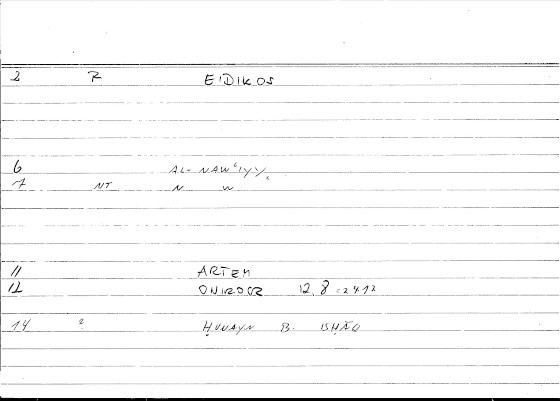 2 R EIDIKOS
6 AL-NAWʿIYY
7 NT N W
11 ARTEM
12 ONIROCR 12,8 = 2412
14 ? ḤUNAYN B. ISḤĀQ